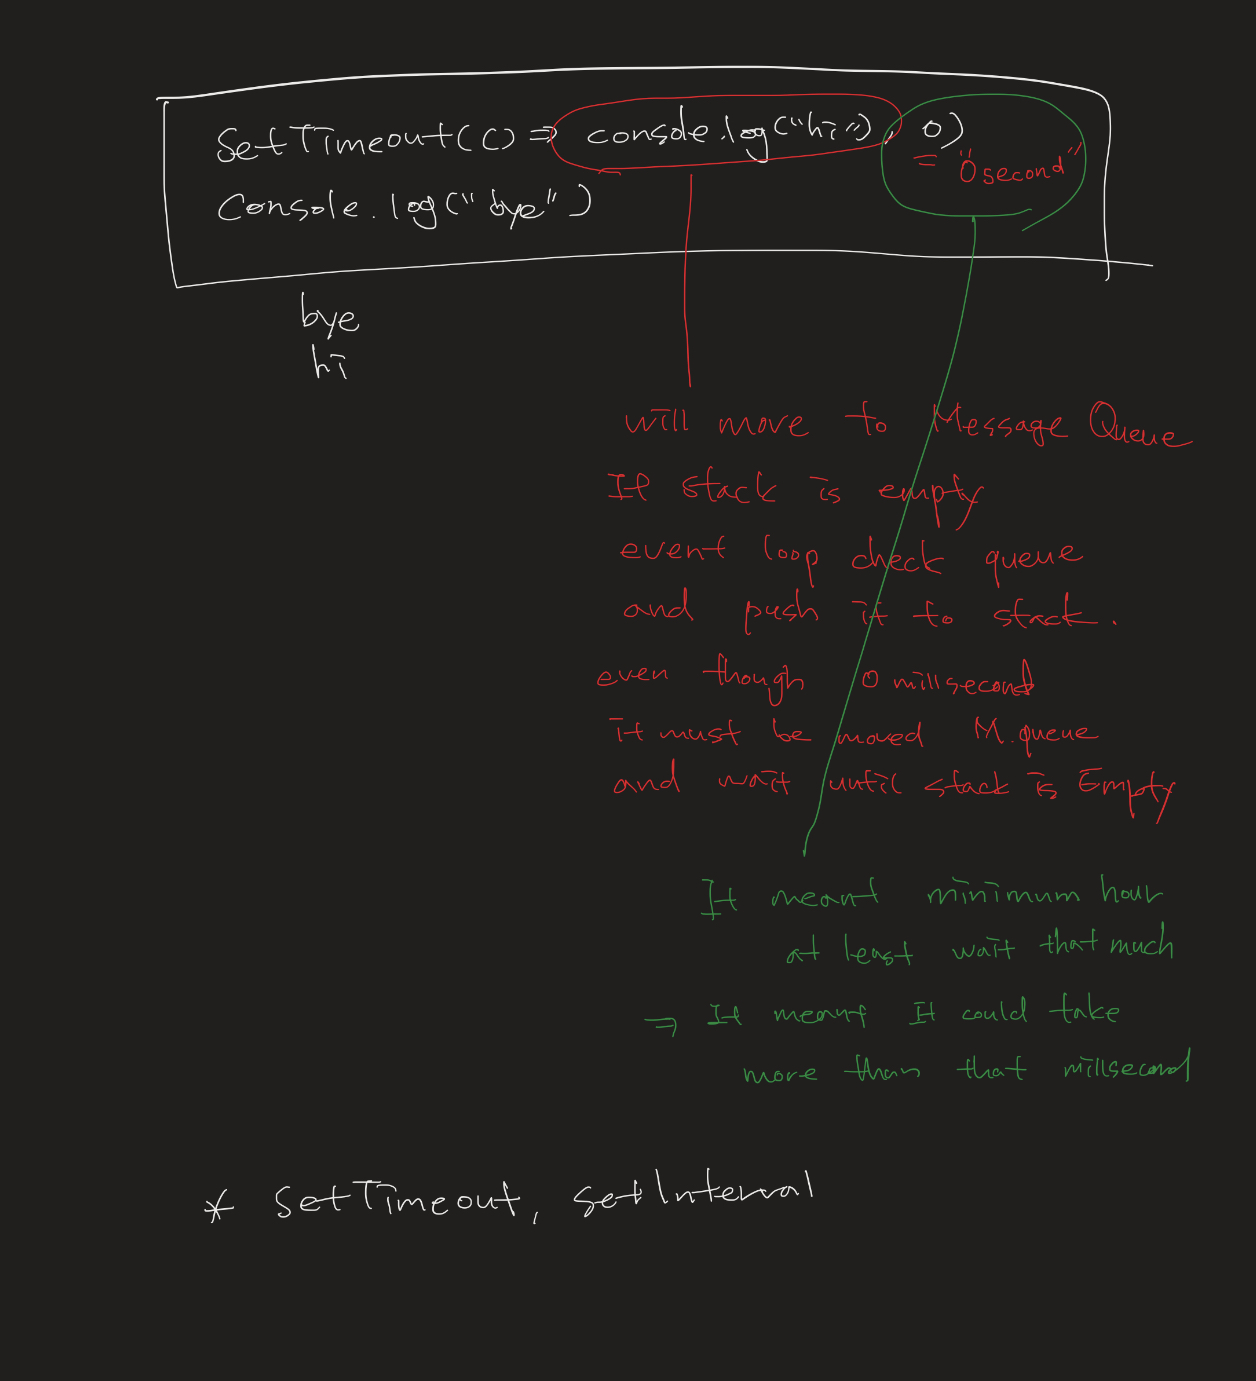 SetTimeout(() => console.log("hi"), 0)
= "0 second"
Console.log("bye")
bye
hi
will move to Message Queue
If stack is empty
event loop check queue
and push it to stack.
even though 0 millsecond
it must be moved M.queue
and wait until stack is Empty
It meant minimum hour
at least wait that much
⇒ It meant It could take
more than that millsecond
* SetTimeout, setInterval